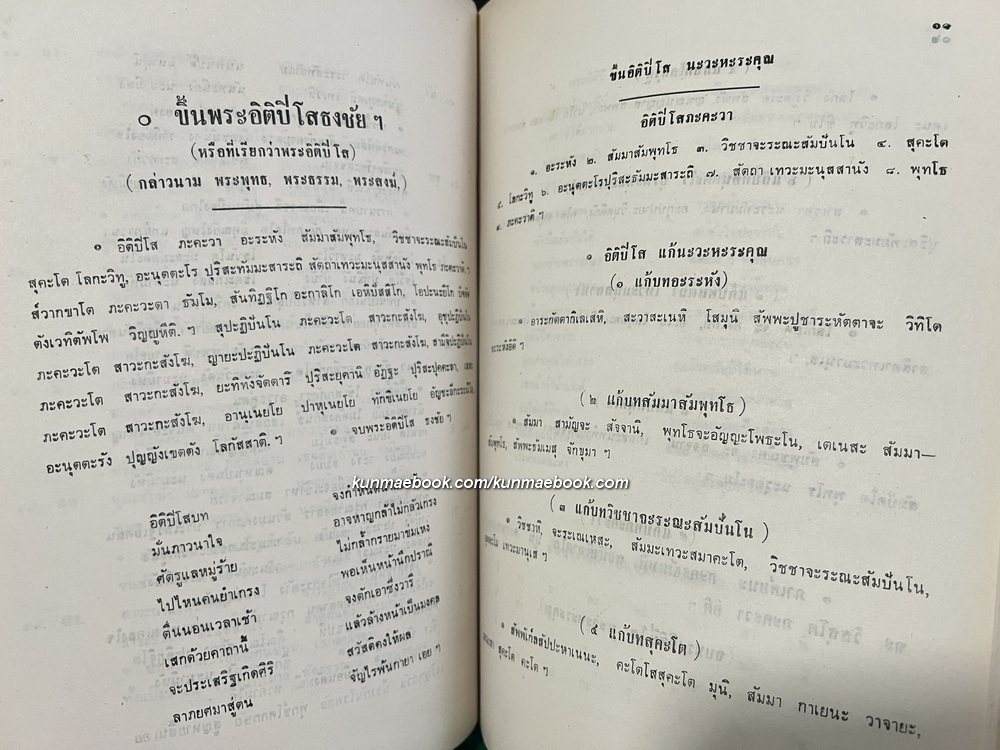 ๐ ขึ้นพระอิติปิโสธงชัย ฯ
(หรือที่เรียกว่าพระอิติปิโส)
( กล่าวนาม พระพุทธ, พระธรรม, พระสงฆ์,)
๑ อิติปิโส ภะคะวา อะระหัง สัมมาสัมพุทโธ, วิชชาจะระณะสัมปันโน
สุคะโต โลกะวิทู, อะนุตตะโร ปุริสะทัมมะสาระถิ สัตถาเทวะมะนุสสานัง พุทโธ ภะคะวาติ ฯ
ส๎วากขาโต ภะคะวะตา ธัมโม, สันทิฏฐิโก อะกาลิโก เอหิปัสสิโก, โอปะนะยิโก ปัจจัต
ตังเวทิตัพโพ วิญญูหีติ. ฯ สุปะฏิปันโน ภะคะวะโต สาวะกะสังโฆ, อุชุปะฏิปันโน
ภะคะวะโต สาวะกะสังโฆ, ญายะปะฏิปันโน ภะคะวะโต สาวะกะสังโฆ, สามีจิปะฏิปันโน
ภะคะวะโต สาวะกะสังโฆ, ยะทิทังจัตตาริ ปุริสะยุคานิ อัฏฐะ ปุริสะปุคคะลา, เอสะ
ภะคะวะโต สาวะกะสังโฆ, อาหุเนยโย ปาหุเนยโย ทักขิเนยโย อัญชะลีกะระณีโย,
อะนุตตะรัง ปุญญังเขตตัง โลกัสสาติ. ฯ ๑ จบพระอิติปิโส ธงชัย ฯ
อิติปิโสบท
มั่นภาวนาใจ อาจหาญกล้าไม่กลัวเกรง
ศัตรูแลหมู่ร้าย ไม่กล้ำกรายมาข่มเหง
ไปไหนคนยำเกรง พอเห็นหน้านึกปรานี
ตื่นนอนเวลาเช้า จงตักเอาซึ่งวารี
เสกด้วยคาถานี้ แล้วล้างหน้าเป็นมงคล
จะประเสริฐเกิดศิริ สวัสดิคงให้ผล
ลาภยศมาสู่ตน จัญไรพ้นกายา เอย ฯ
kunmaebook.com/kunmaebook.com
๑๑
ขึ้นอิติปิโส นะวะหะระคุณ
อิติปิโสภะคะวา
๑. อะระหัง ๒. สัมมาสัมพุทโธ ๓. วิชชาจะระณะสัมปันโน ๔. สุคะโต
๕. โลกะวิทู ๖. อะนุตตะโรปุริสะธัมมะสาระถิ ๗. สัตถา เทวะมะนุสสานัง ๘. พุทโธ
๙. ภะคะวาติ ฯ
๑ อิติปิโส แก้นะวะหะระคุณ
(๑ แก้บทอะระหัง)
๑ อาระกัตตากิเลเสหิ, สะวาสะเนหิ โสมุนิ สัพพะปูชาระหัตตาจะ วิทิโต
อะระหังอิติ ฯ
( ๒ แก้บทสัมมาสัมพุทโธ )
๑ สัมมา สามัญจะ สัจจานิ, พุทโธจะอัญญะโพธะโน, เตเนสะ สัมมา—
สัมพุทโธ, สัพพะธัมเมสุ จักขุมา ฯ
( ๓ แก้บทวิชชาจะระณะสัมปันโน )
๑ วิชชาหิ, จะระเณเหสะ, สัมมะเทวะสมาคะโต, วิชชาจะระณะสัมปันโน,
เทวะมานุเส ฯ
( ๔ แก้บทสุคะโต )
๑ สัพพกิเล็สสัปปะหาเนนะ, คะโตโสสุคะโต มุนิ, สัมมา กาเยนะ วาจายะ,
สุคะโต คะโต ฯ